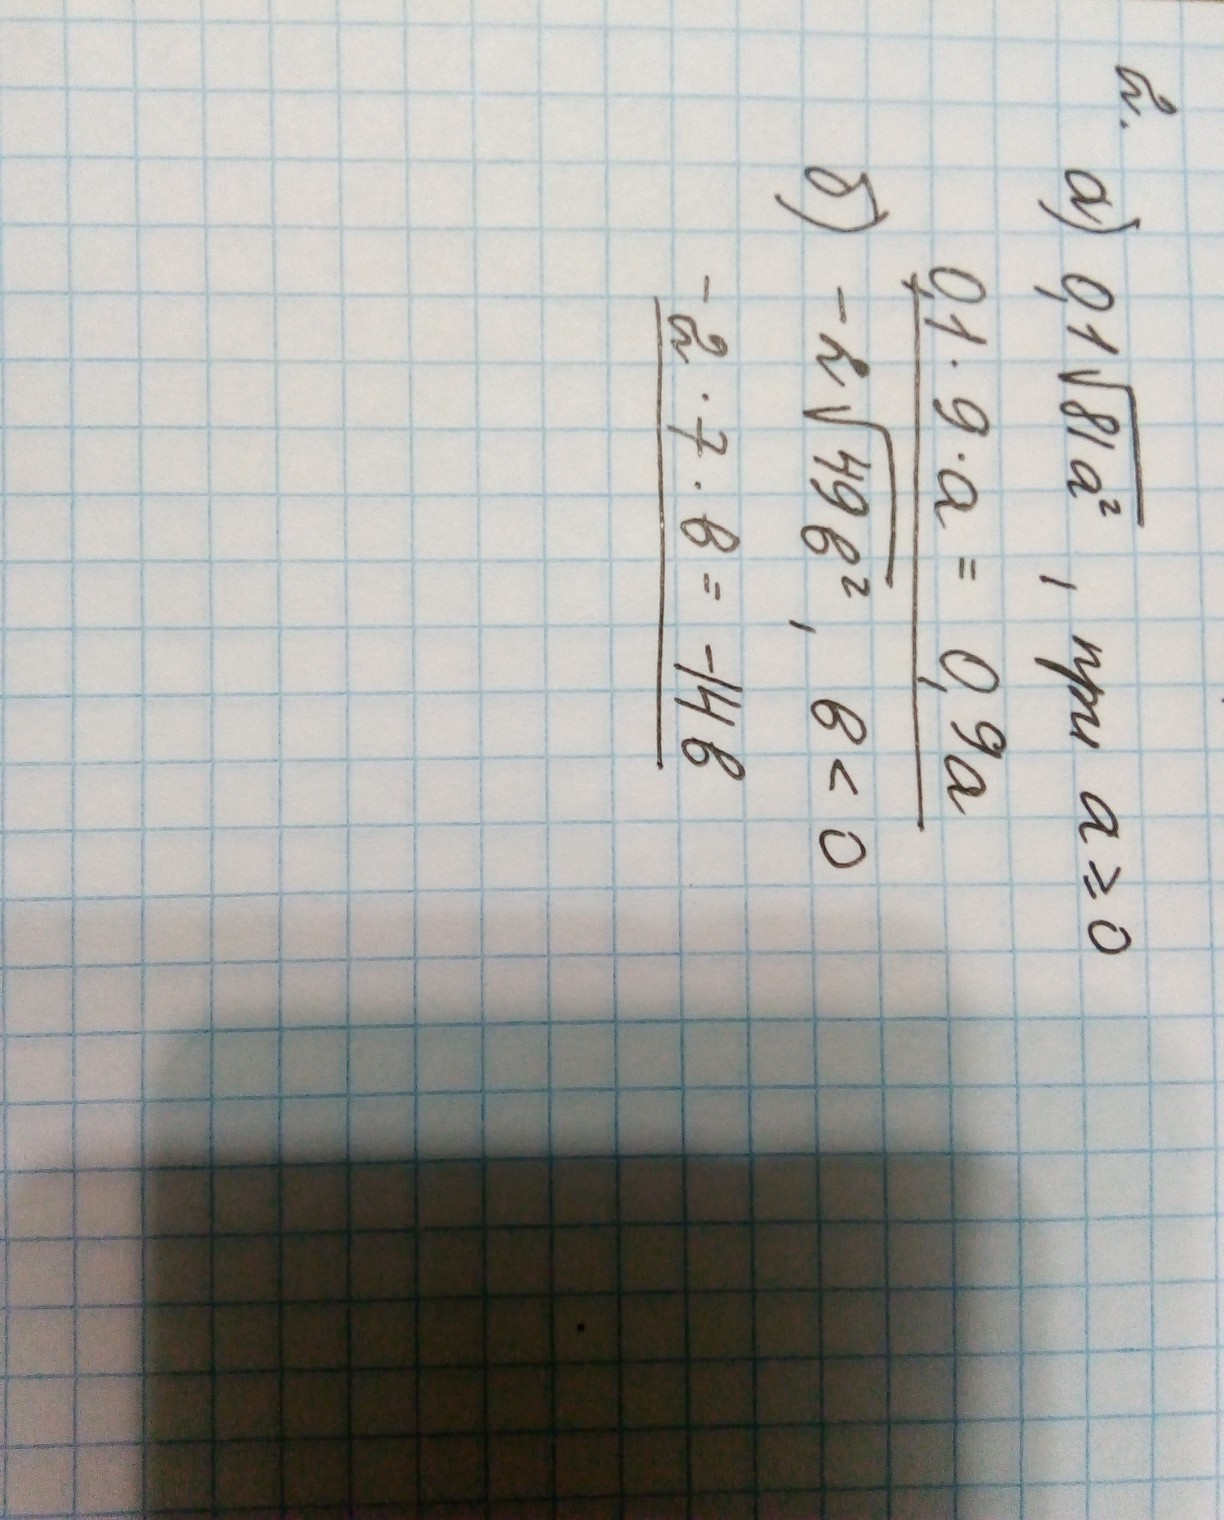 2.
а) 0,1√81a² , при a ≥ 0
0,1 · 9 · a = 0,9a
б) -2√49в² , в < 0
-2 · 7 · в = -14в